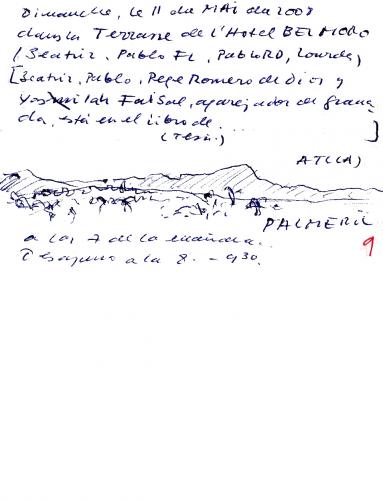 Dimanche, le 11 du MAi du 2008
dans la Terrasse de L'Hotel BEL MORO
(Beatriz, Pablo FL, Pablo RD, Lourdes,
[Beatriz, Pablo, Pepe Romero de Dios y
Faisal, aparejador de grana-
da, está en el libro de ... ]
(Tesis)
ATLAS
PALMERIL
a las 7 de la mañana..
Desayuno a la 8. - 9,30.
9